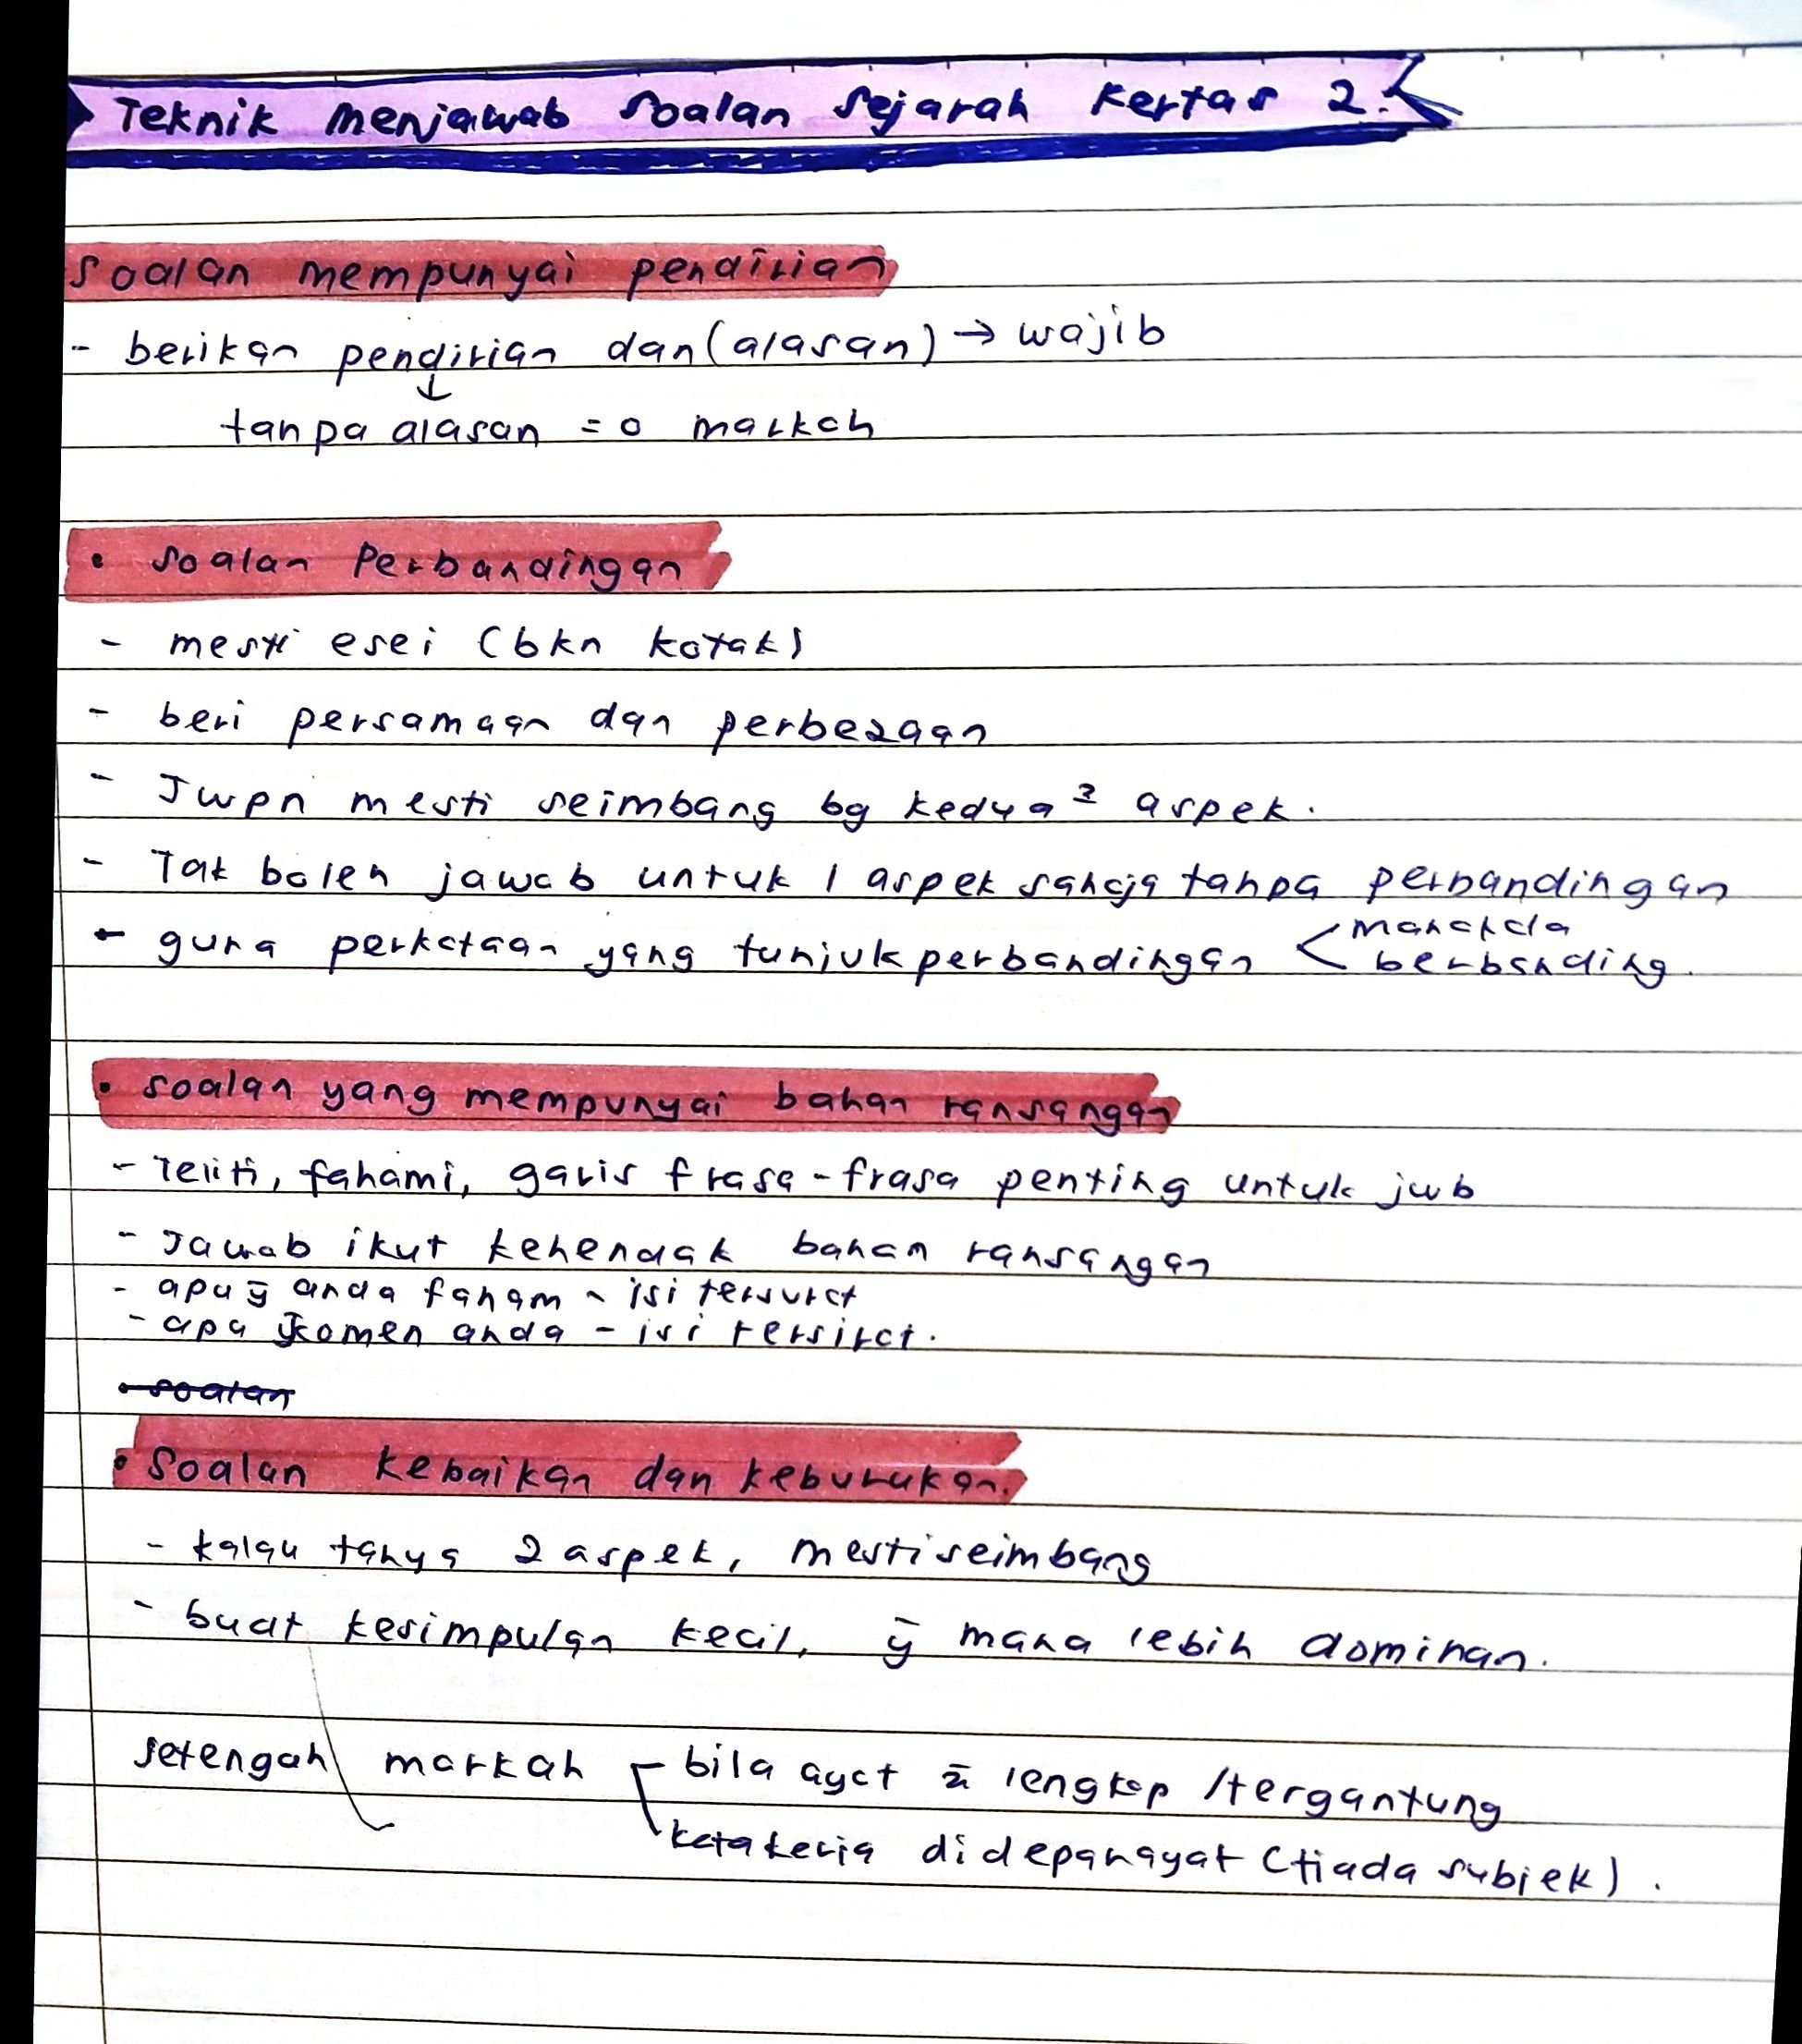 Teknik menjawab soalan sejarah kertas 2.
soalan mempunyai pendirian
- berikan pendirian dan (alasan) → wajib
↓
tanpa alasan = 0 markah
• soalan Perbandingan
- mesti esei (bkn kotak)
- beri persamaan dan perbezaan
- Jwpn mesti seimbang bg kedua² aspek.
- Tak boleh jawab untuk 1 aspek sahaja tanpa perbandingan
- guna perkataan yang tunjuk perbandingan < manakala
berbanding.
• soalan yang mempunyai bahan ransangan
- Teliti, fahami, garis frasa-frasa penting untuk jwb
- Jawab ikut kehendak bahan ransangan
- apa ȳ anda faham - isi tersurat
- apa komen anda - isi tersirat.
• soalan
• Soalan kebaikan dan keburukan.
- kalau tanya 2 aspek, mesti seimbang
- buat kesimpulan kecil, ȳ mana lebih dominan.
setengah markah - bila ayat z̄ lengkap / tergantung
kata kerja didepan ayat (tiada subjek).